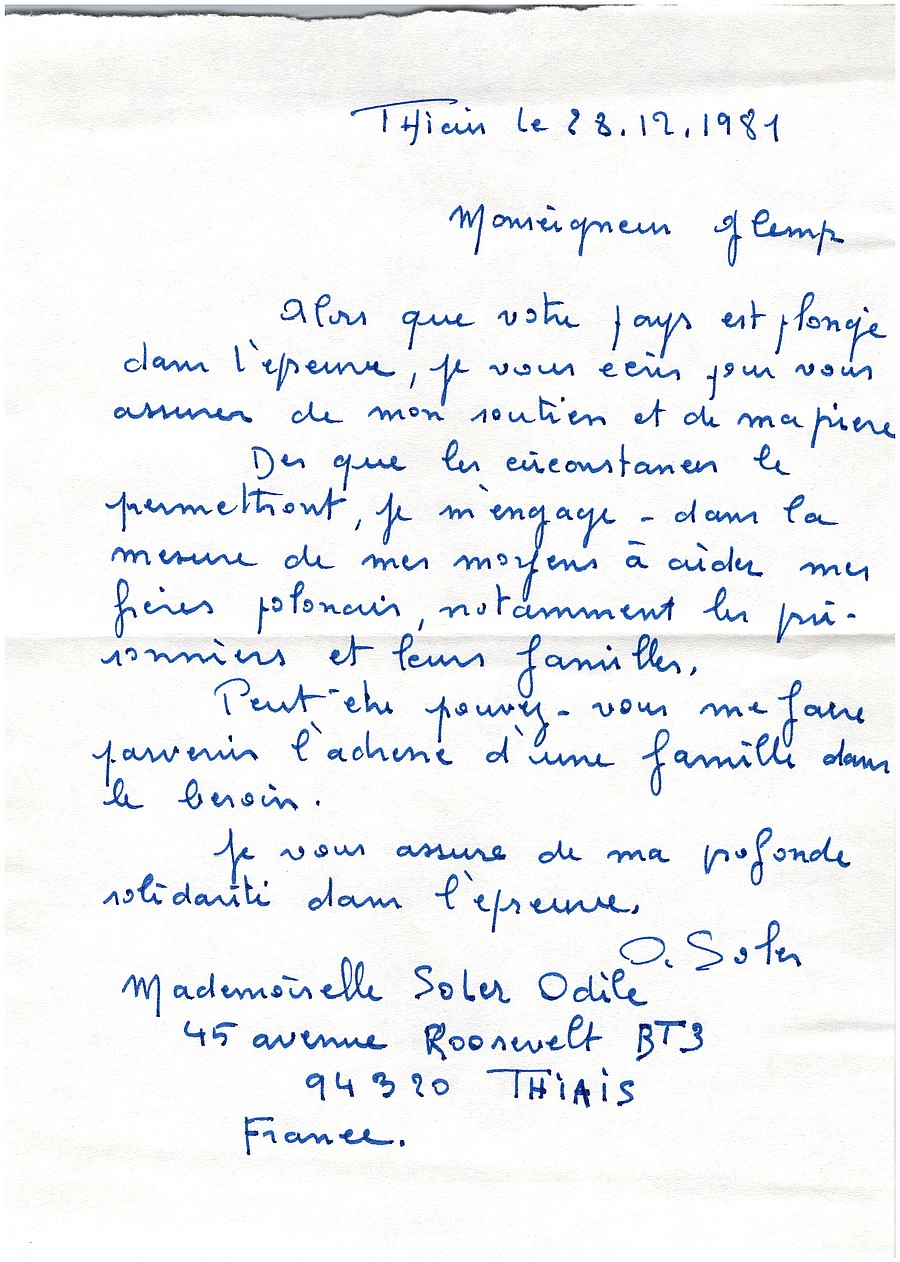 THiais le 28.12.1981
Monseigneur Glemp
Alors que votre pays est plongé
dans l'épreuve, je vous écris pour vous
assurer de mon soutien et de ma prière
Dès que les circonstances le
permettront, je m'engage - dans la
mesure de mes moyens à aider mes
frères polonais, notamment les pri-
sonniers et leurs familles.
Peut-être pouvez-vous me faire
parvenir l'adresse d'une famille dans
le besoin.
Je vous assure de ma profonde
solidarité dans l'épreuve.
O. Soler
Mademoiselle Soler Odile
45 avenue Roosevelt BT3
94320 THIAIS
France.